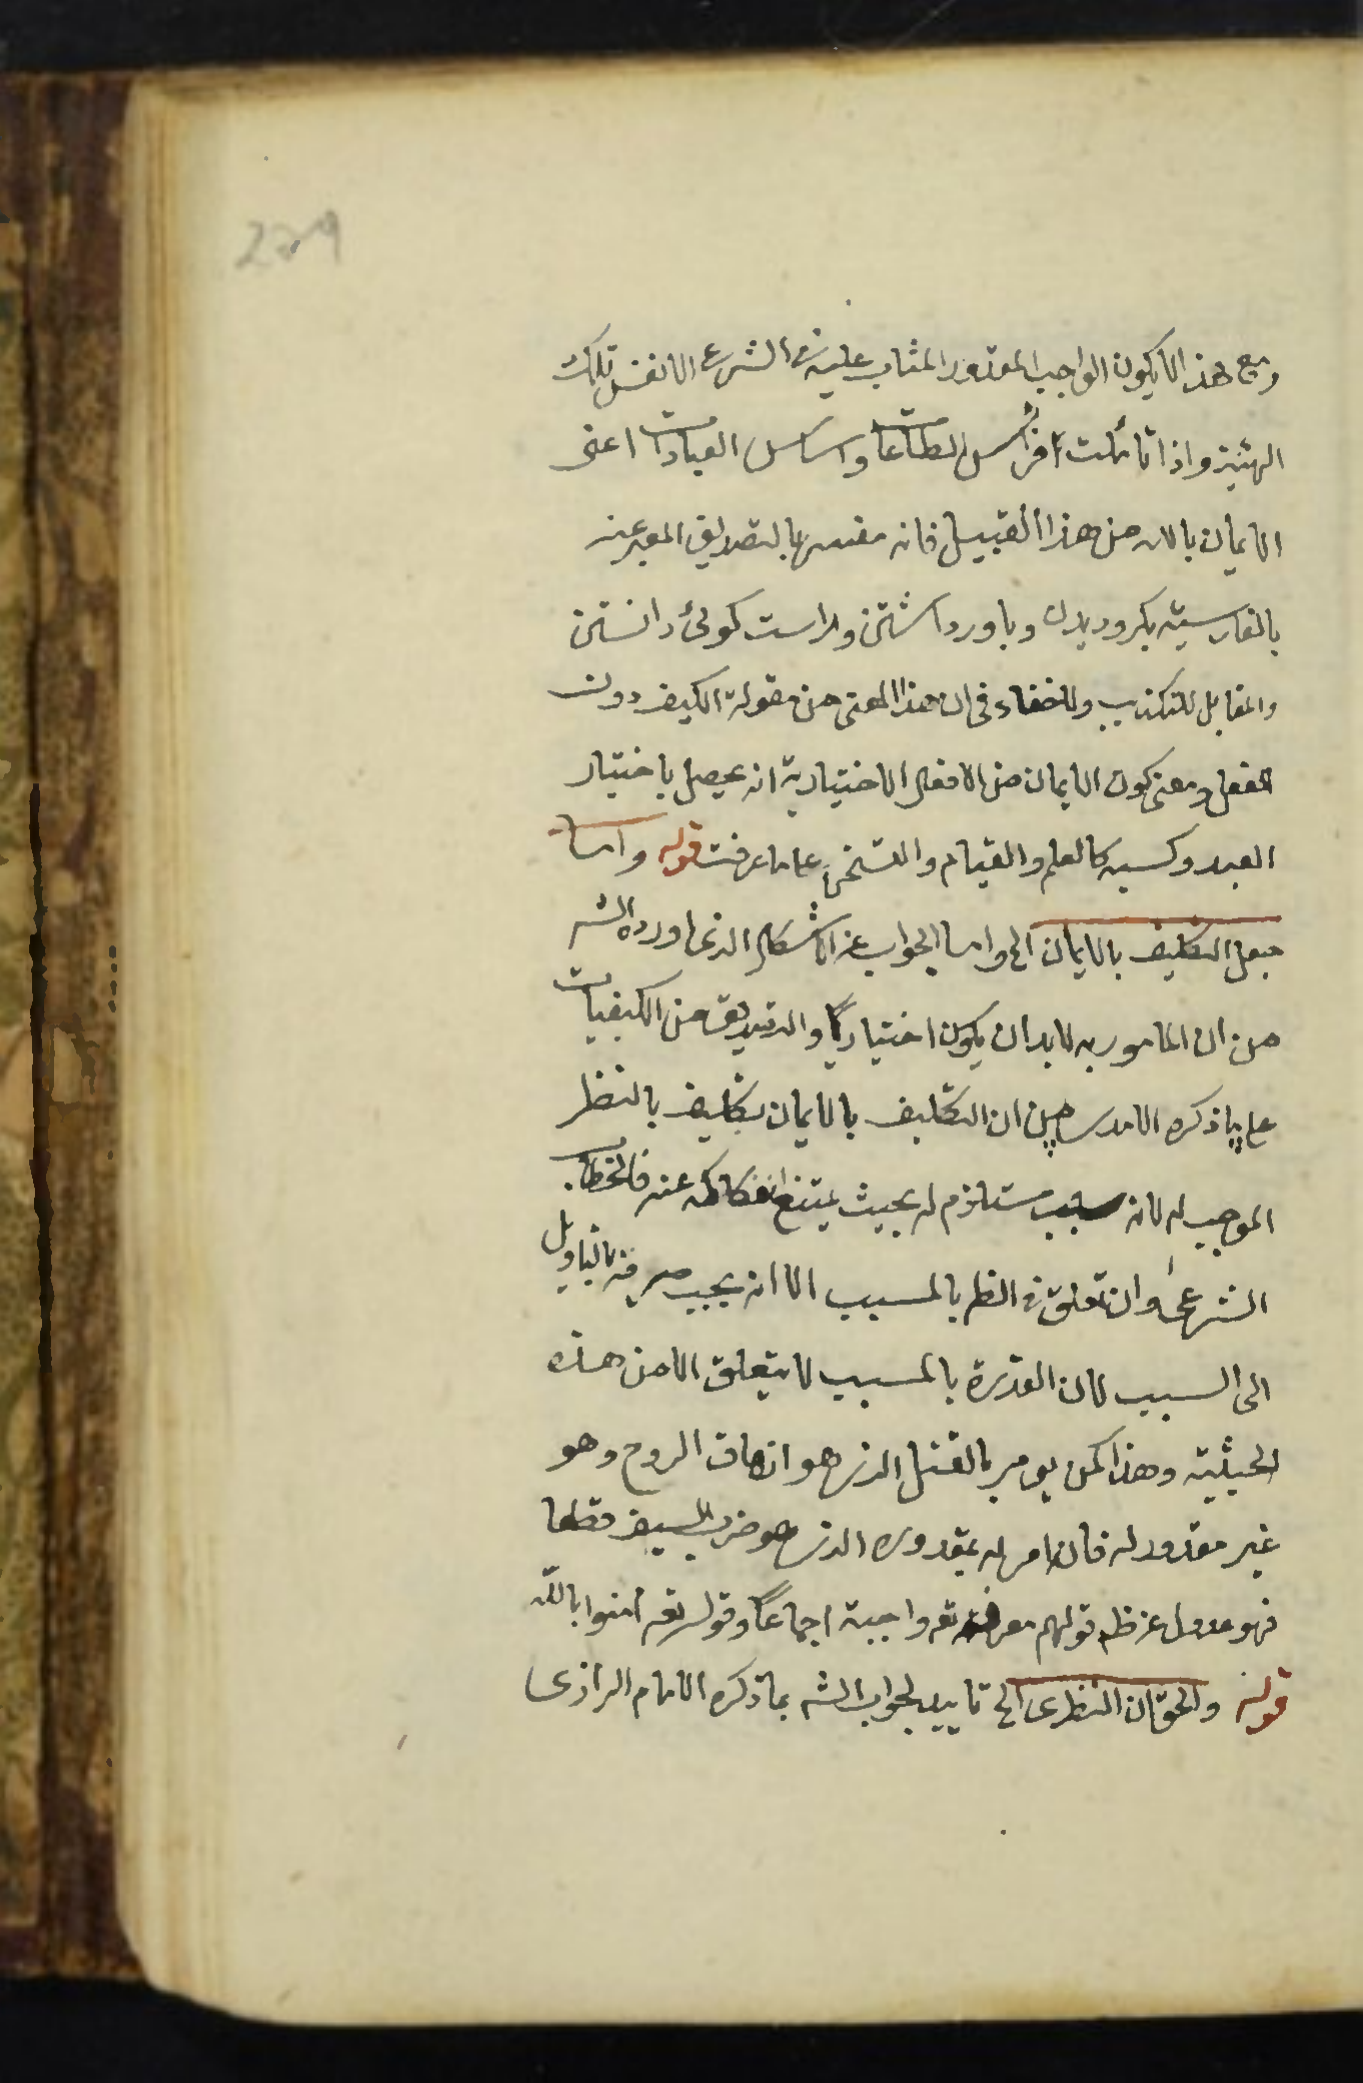 229
ومع هذا لا يكون الواجب المقدور المثاب عليه في الشرع الا نفس تلك
الهيئة واذا تأملت فرأس الطاعات واساس العبادات اعنى
الايمان بالله من هذا القبيل فانه مفسر بالتصديق المعبر عنه
بالفارسية بكرويدن وباور داشتن وراست كوى دانستن
والمقابل للتكذيب ولا خفاء فى ان هذا المعنى من مقولة الكيف دون
الفعل ومعنى كون الايمان من الافعال الاختيارية انه يحصل باختيار
العبد وكسبه كالعلم والقيام والتسخن على ما عرفت قوله واما
جعل التكليف بالايمان الخ واما الجواب عن الاشكال الذى اورده الشه
من ان المامور به لابد ان يكون اختياريا والتصديق من الكيفيات
على ما ذكره الامدى من ان التكليف بالايمان تكليف بالنظر
الموجب له لانه سبب مستلزم له بحيث يمتنع انفكاكه عنه فالخطاب
الشرعى وان تعلق فى الظ بالمسبب الا انه يجب صرفه بالتاويل
الى السبب لان القدرة بالمسبب لا يتعلق الا من هذه
الحيثية وهذا كمن يومر بالقتل الذى هو ازهاق الروح وهو
غير مقدور له فان امر له بمقدوره الذى هو ضرب السيف قطعا
فهو عدول عن ظ قولهم معرفته تعه واجبة اجماعا وقوله تعه امنوا بالله
قوله والحق ان النظرى الخ تاييد لجواب الشه بما ذكره الامام الرازى